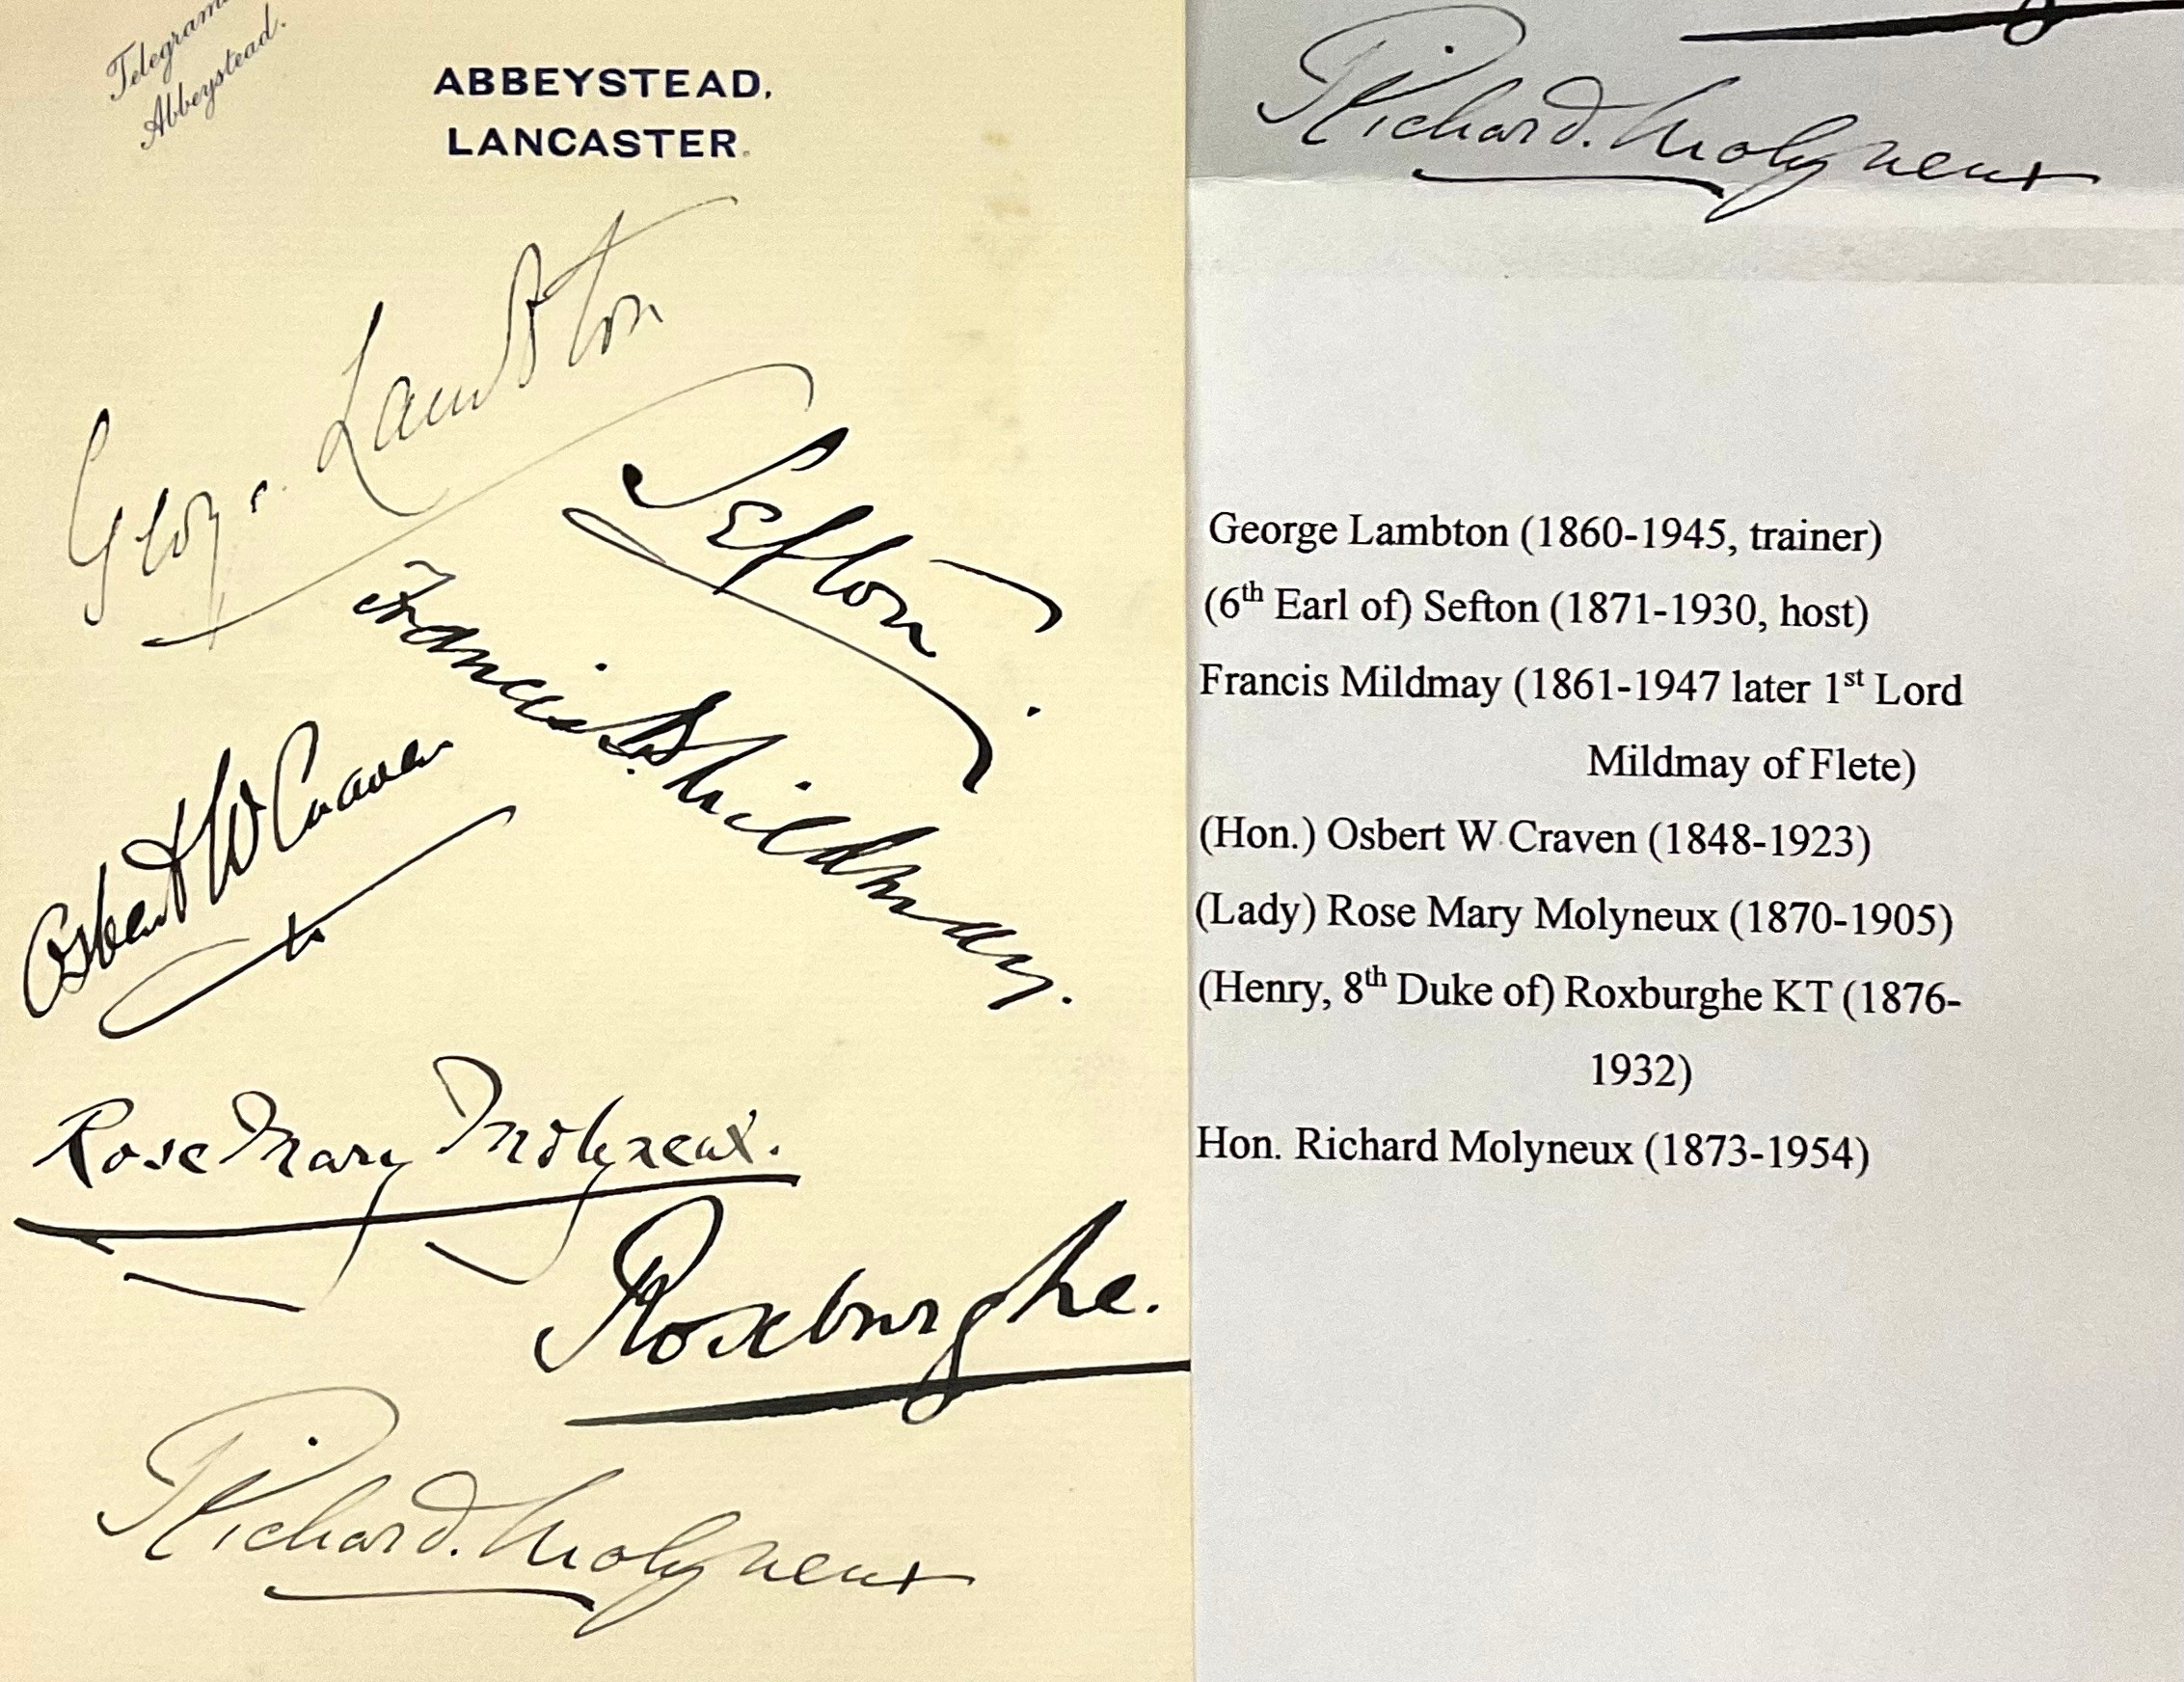 Telegrams
Abbeystead.
ABBEYSTEAD,
LANCASTER.
George Lambton
Sefton.
Francis B. Mildmay.
Osbert W Craven
Rose Mary Molyneux.
Roxburghe.
Richard. Molyneux
Richard. Molyneux
George Lambton (1860-1945, trainer)
(6th Earl of) Sefton (1871-1930, host)
Francis Mildmay (1861-1947 later 1st Lord
Mildmay of Flete)
(Hon.) Osbert W Craven (1848-1923)
(Lady) Rose Mary Molyneux (1870-1905)
(Henry, 8th Duke of) Roxburghe KT (1876-
1932)
Hon. Richard Molyneux (1873-1954)